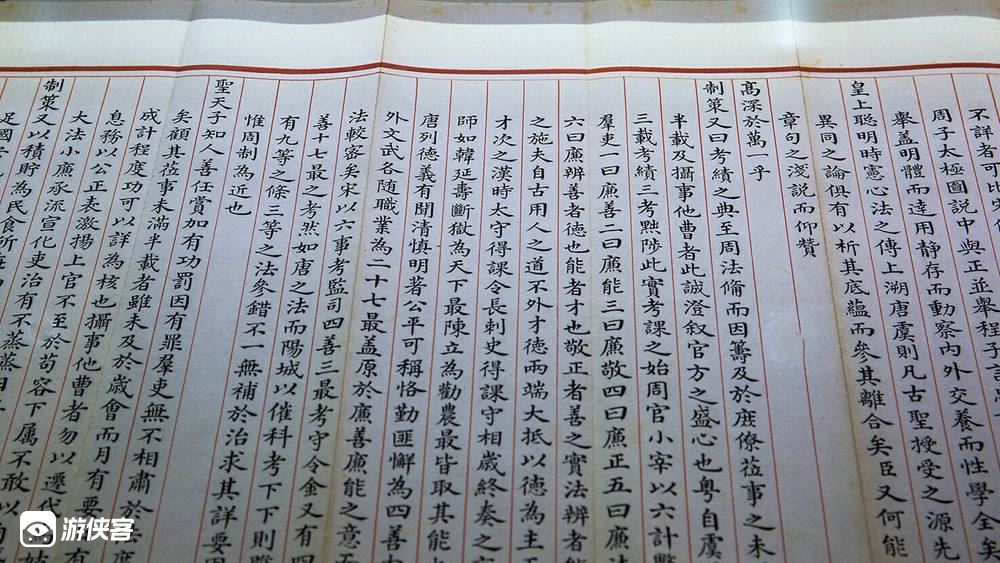 不詳者可比
周子太極圖說中與正並舉程子言
舉蓋明體而達用静存而動察内外交養而性學全矣
皇上聰明時憲心法之傳上溯唐虞則凡古聖授受之源先
異同之論俱有以析其底蘊而參其離合矣臣又何能
章句之淺說而仰贊
高深於萬一乎
制策又曰考績之典至周法備而因籌及於庶僚莅事之未
半載及攝事他曹者此誠澄叙官方之盛心也粤自虞
三載考績三考黜陟此實考課之始周官小宰以六計弊
羣吏一曰廉善二曰廉能三曰廉敬四曰廉正五曰廉法
六曰廉辨善者德也能者才也敬正者善之實法辨者能
之施夫自古用人之道不外才德兩端大抵以德為主
才次之漢時太守得課令長刺史得課守相歲終奏之
師如韓延壽斷獄為天下最陳立為勸農最皆取其能
唐列德義有聞清慎明著公平可稱恪勤匪懈為四善
外文武各随職業為二十七最蓋原於廉善廉能之意
法較密矣宋以六事考監司四善三最考守令金又有四
善十七最之考然如唐之法而陽城以催科考下下則
有九等之條三等之法參錯不一無補於治求其詳要
惟周制為近也
聖天子知人善任賞加有功罰因有罪羣吏無不相肅於
矣顧其莅事未滿半載者雖未及於歲會而月有要
成計程度功可以詳為核也攝事他曹者勿以遷代
息務以公正表激揚上官不至於苟容下属不敢以
大法小廉承流宣化吏治有不蒸蒸日
制策又以積貯為民食所
足國
游侠客